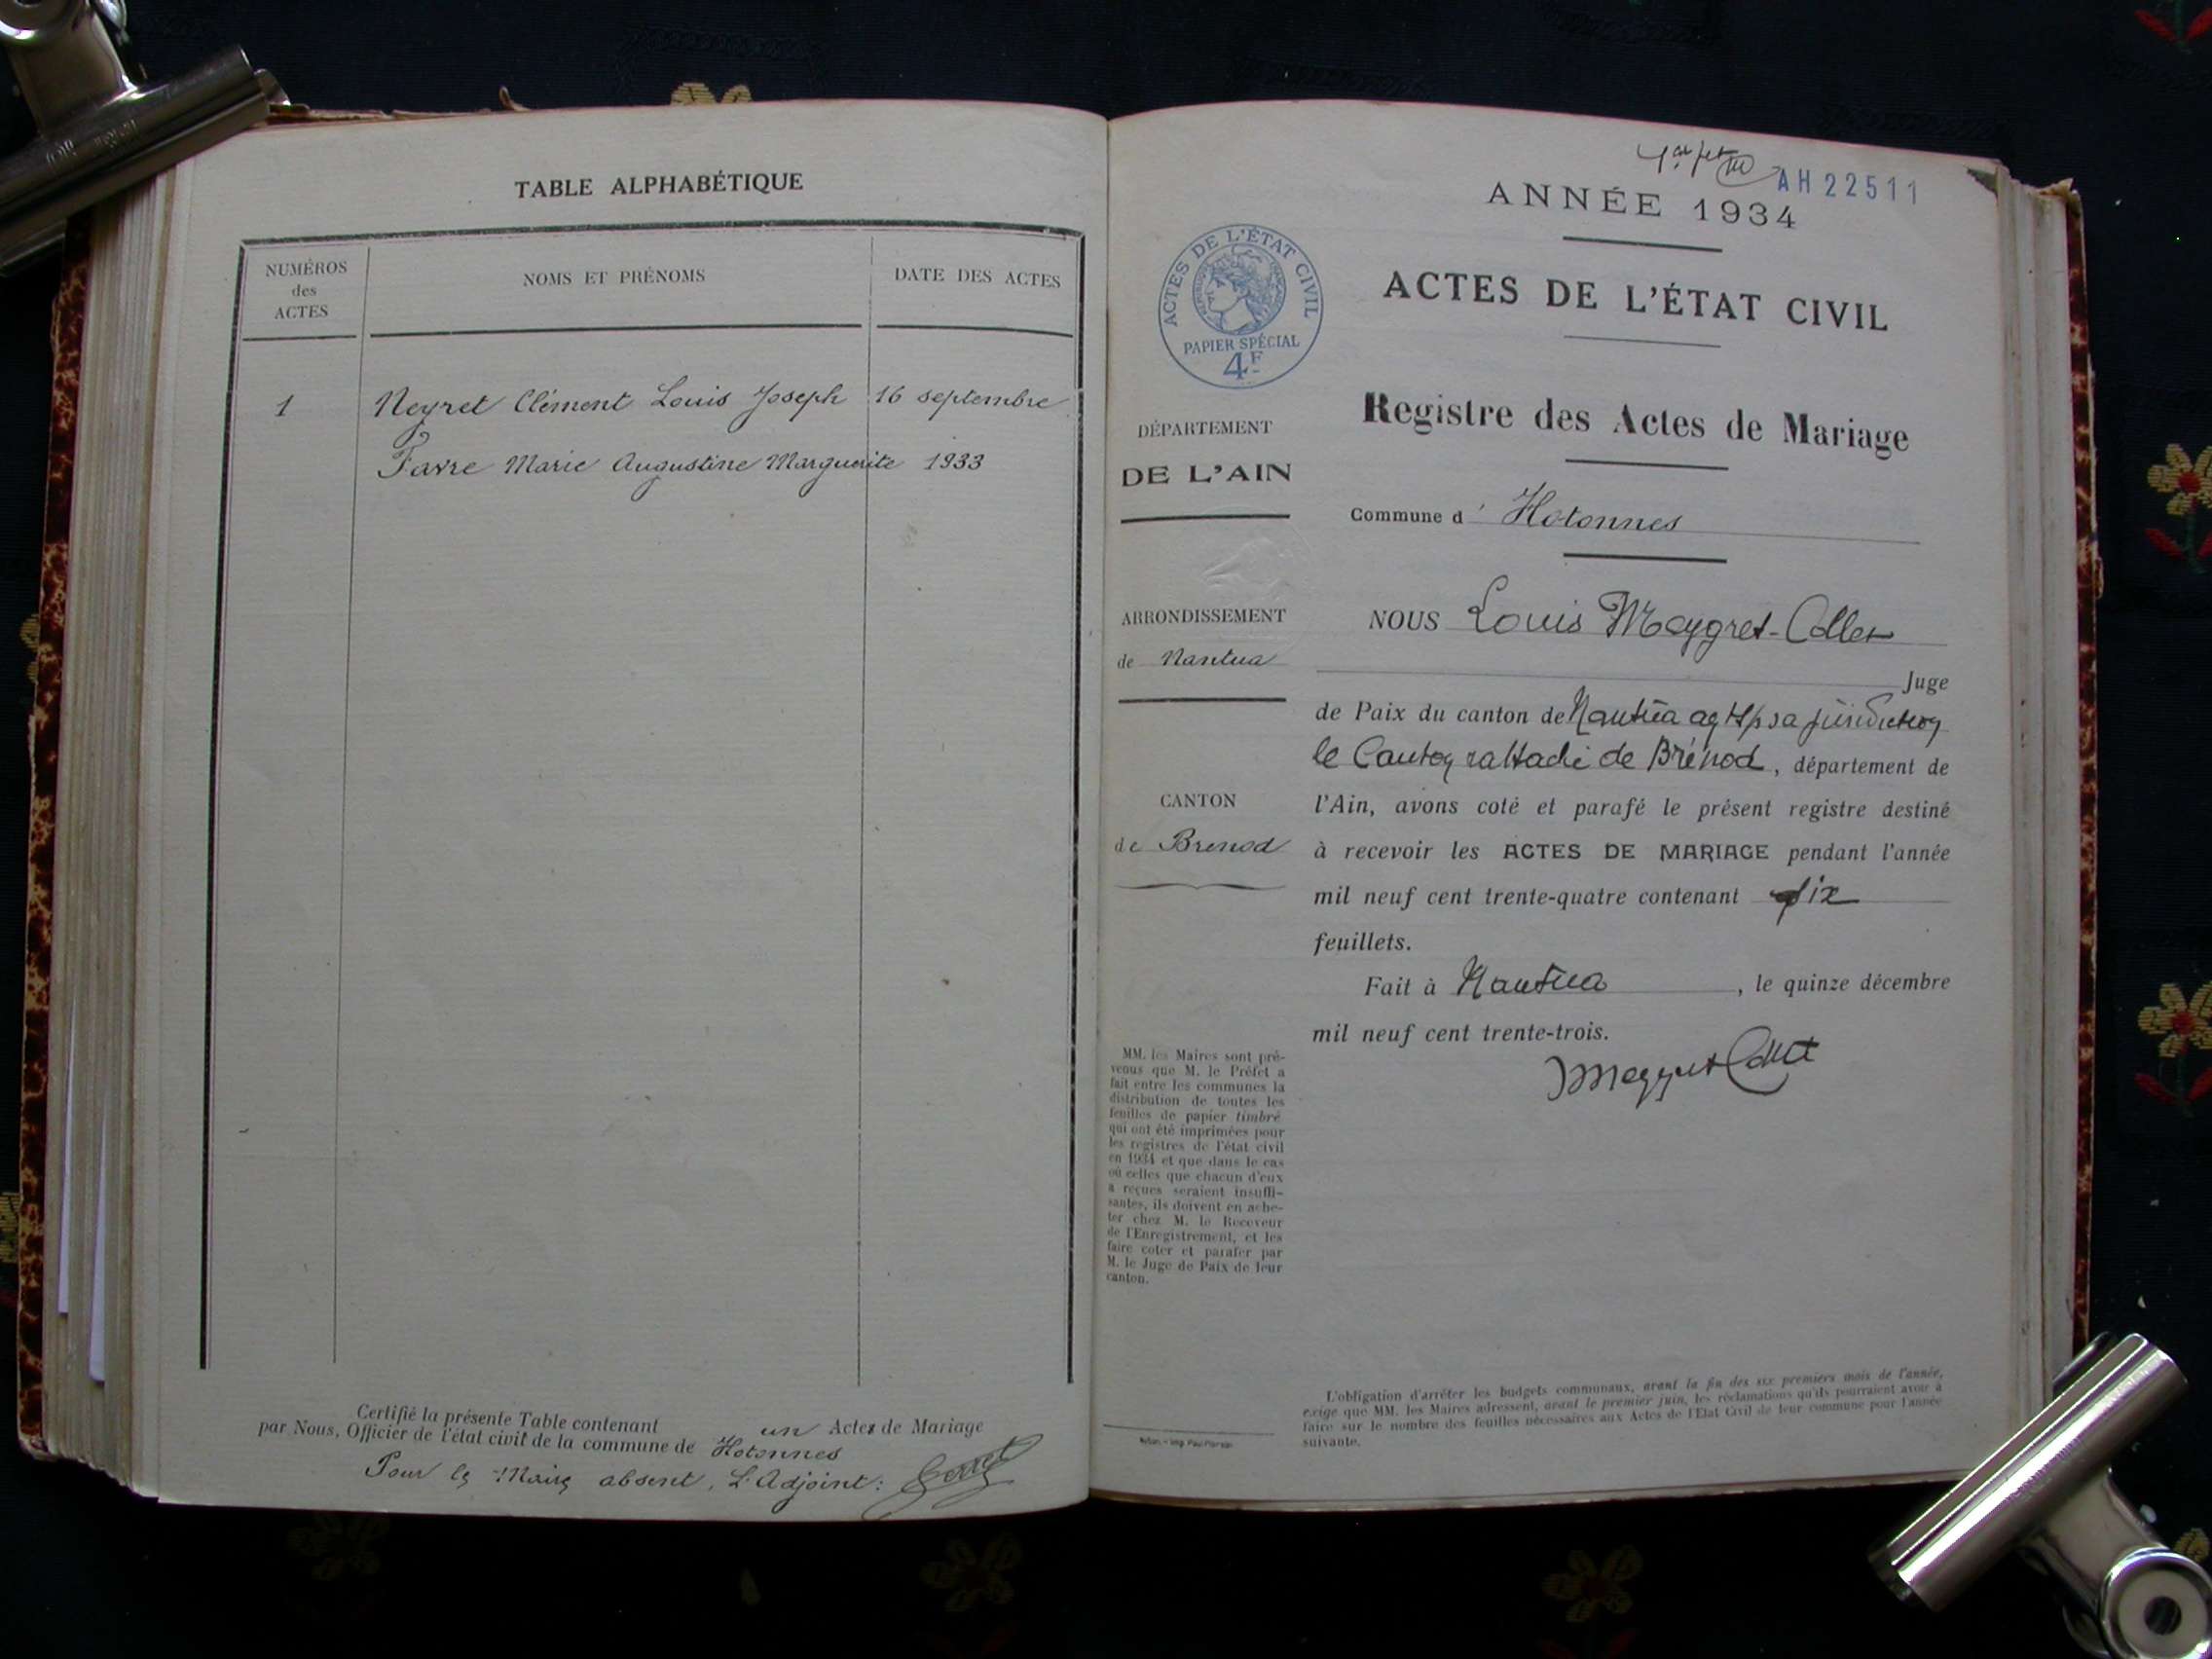 TABLE ALPHABÉTIQUE
NUMÉROS
des
ACTES
NOMS ET PRÉNOMS
DATE DES ACTES
1 Neyret Clément Louis Joseph 16 septembre
Favre Marie Augustine Marguerite 1933
Certifié la présente Table contenant un Actes de Mariage
par Nous, Officier de l'état civil de la commune de Hotonnes
Pour le Maire absent, L'Adjoint:
AH 22511
ANNÉE 1934
ACTES DE L'ÉTAT CIVIL
PAPIER SPÉCIAL
4F
ACTES DE L'ÉTAT CIVIL
Registre des Actes de Mariage
DÉPARTEMENT
DE L'AIN
Commune d' Hotonnes
ARRONDISSEMENT
de Nantua
CANTON
de Brenod
MM. les Maires sont pré-
venus que M. le Préfet a
fait entre les communes la
distribution de toutes les
feuilles de papier timbré
qui ont été imprimées pour
les registres de l'état civil
en 1934 et que dans le cas
où celles que chacun d'eux
a reçues seraient insuffi-
santes, ils doivent en ache-
ter chez M. le Receveur
de l'Enregistrement, et les
faire coter et parafer par
M. le Juge de Paix de leur
canton.
NOUS Louis Meygret-Collet
Juge
de Paix du canton de Nantua ayt s/ sa juridiction
le Canton rattaché de Brénod, département de
l'Ain, avons coté et parafé le présent registre destiné
à recevoir les ACTES DE MARIAGE pendant l'année
mil neuf cent trente-quatre contenant six
feuillets.
Fait à Nantua, le quinze décembre
mil neuf cent trente-trois.
Meygret Collet
L'obligation d'arrêter les budgets communaux, avant la fin des six premiers mois de l'année,
exige que MM. les Maires adressent, avant le premier juin, les réclamations qu'ils pourraient avoir à
faire sur le nombre des feuilles nécessaires aux Actes de l'Etat Civil de leur commune pour l'année
suivante.